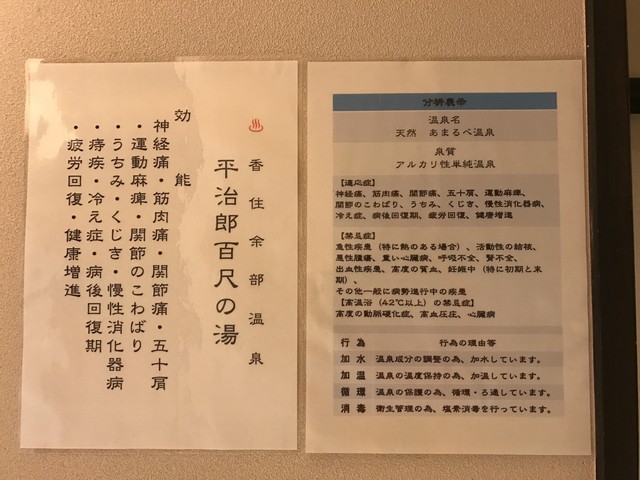 香住余部温泉
平治郎百尺の湯
効能
神経痛・筋肉痛・関節痛・五十肩
・運動麻痺・関節のこわばり
・うちみ・くじき・慢性消化器病
・痔疾・冷え症・病後回復期
・疲労回復・健康増進
分析表示
温泉名
天然 あまるべ温泉
泉質
アルカリ性単純温泉
【適応症】
神経痛、筋肉痛、関節痛、五十肩、運動麻痺、
関節のこわばり、うちみ、くじき、慢性消化器病、
冷え症、病後回復期、疲労回復、健康増進
【禁忌症】
急性疾患（特に熱のある場合）、活動性の結核、
悪性腫瘍、重い心臓病、呼吸不全、腎不全、
出血性疾患、高度の貧血、妊娠中（特に初期と末
期）、
その他一般に病勢進行中の疾患
【高温浴（42℃以上）の禁忌症】
高度の動脈硬化症、高血圧症、心臓病
行為 行為の理由等
加水 温泉成分の調整の為、加水しています。
加温 温泉の温度保持の為、加温しています。
循環 温泉の保護の為、循環・ろ過しています。
消毒 衛生管理の為、塩素消毒を行っています。